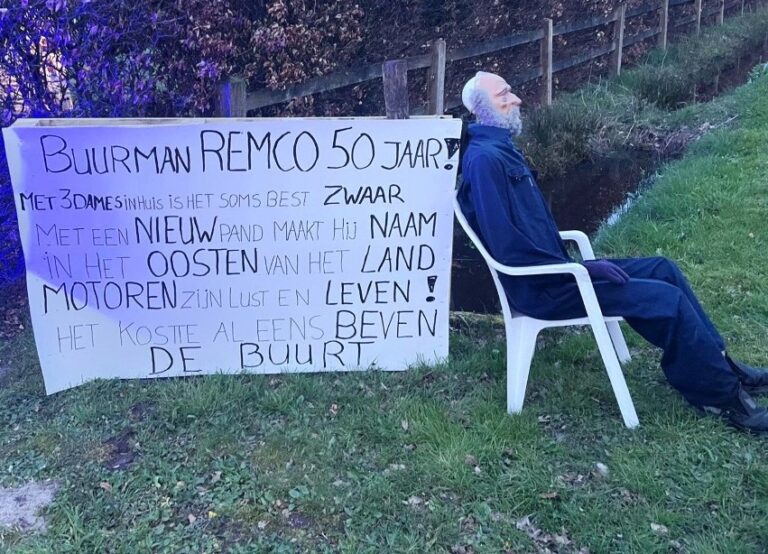 BUURMAN REMCO 50 JAAR!
MET 3 DAMES IN HUIS IS HET SOMS BEST ZWAAR
MET EEN NIEUW PAND MAAKT HIJ NAAM
IN HET OOSTEN VAN HET LAND
MOTOREN ZIJN LUST EN LEVEN!
HET KOSTTE AL EENS BEVEN
DE BUURT